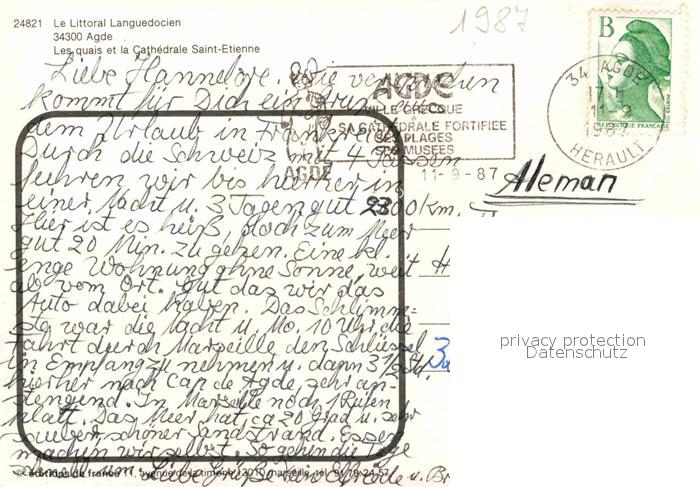 24821 Le Littoral Languedocien
34300 Agde
Les quais et la Cathédrale Saint-Etienne
1987
B
REPUBLIQUE FRANÇAISE
34 AGDE
17 H
11-9
1987
HERAULT
AGDE
VILLE GRECQUE
SA CATHÉDRALE FORTIFIÉE
SES PLAGES
SES MUSEES
AGDE
11-9-87
Aleman
Liebe Hannelore. Wie versprochen
kommt für Dich ein Gruß aus
dem Urlaub in Frankreich.
Durch die Schweiz mit 4 Pässen
fuhren wir bis hierher in
einer Nacht u. 3 Tagen gut 2300 km.
Hier ist es heiß, doch zum Meer
gut 20 Min. zu gehen. Eine kl.
enge Wohnung ohne Sonne, weit
ab vom Ort. Gut das wir das
Auto dabei haben. Das Schlimm=
ste war die Nacht u. Mo. 10 Uhr die
Fahrt durch Marseille den Schlüssel
in Empfang zu nehmen u. dann 3 1/2 Std.
hierher nach Cap de Agde, sehr an-
stengend. In Marseille noch 1 Reifen
platt. Das Meer hat ca 20 Grad u. sehr
sauber, schöner Sandstrand. Essen
machen wir selbst. So gehen die Tage
schnell um. Liebe Grüße
éditions de france 11, avenue de la timone 13010 marseille, tél. 91.79.24.57
privacy protection
Datenschutz